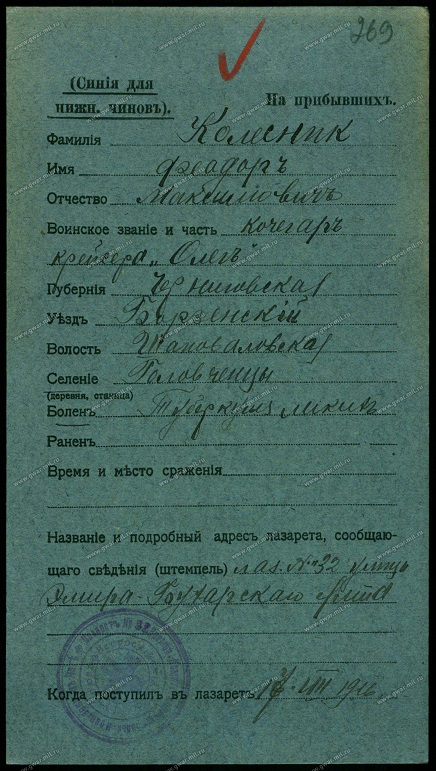 269
(Синія для
нижн. чиновъ).
На прибывшихъ.
Фамилія Колесник
Имя Феодоръ
Отчество Максимовичъ
Воинское званіе и часть кочегаръ
крейсера „Олегъ"
Губернія Черниговская
Уѣздъ Борзенскій
Волость Шаповаловская
Селеніе
(деревня, станица)
Боленъ Туберкул
Раненъ
Время и мѣсто сраженія
Названіе и подробный адресъ лазарета, сообщаю-
щаго свѣдѣнія (штемпель) лаз. № 32
Эмира-Бухарскаго
Когда поступилъ въ лазаретъ VIII 1916